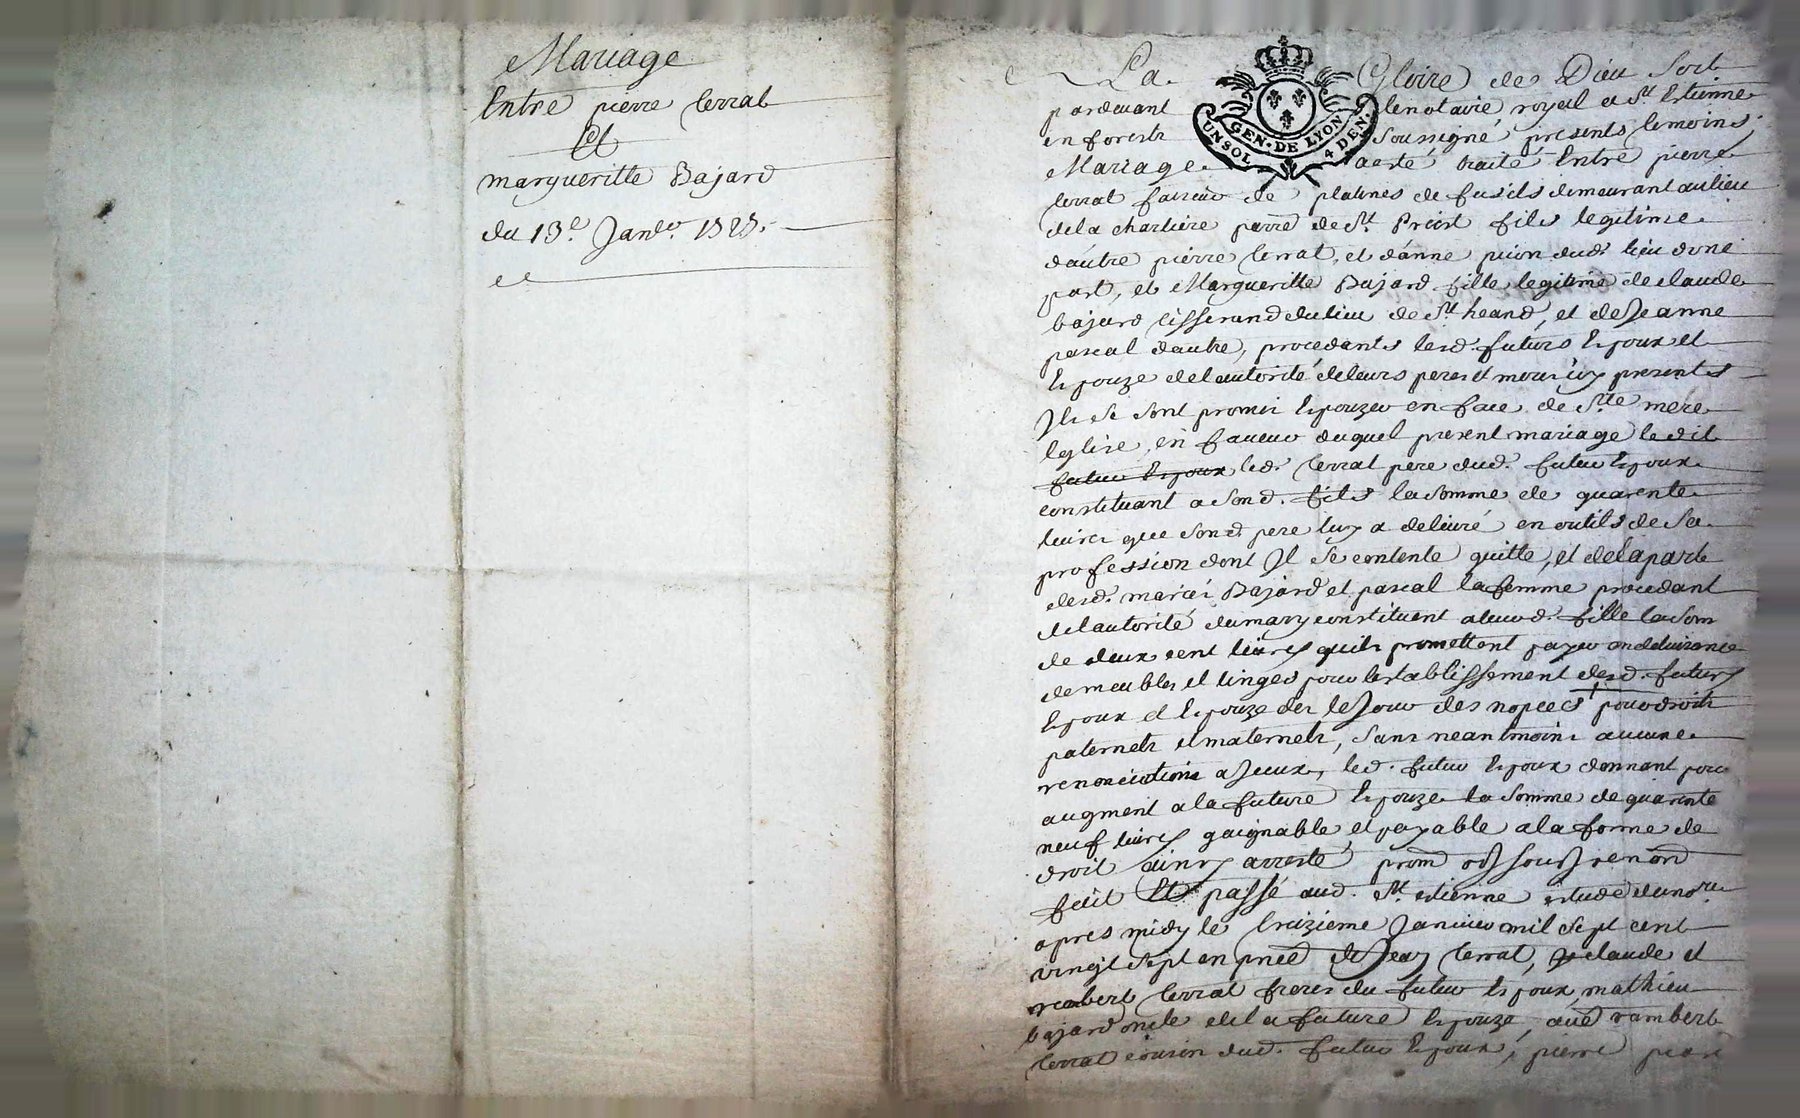 Mariage
Entre pierre terrat
Et
margueritte Bajard
du 13e. Janer. 1727.
La Gloire de Dieu Soit
pardevant le notaire royal a St Estienne
en forests soussigné, presents temoins
Mariage a esté traité Entre pierre
terrat faiseur de platines de fusils demeurant au lieu
de la chartiere parre de St Priest fils legitime
d'autre pierre terrat, et d'anne pud. lieu d'une
part, et Marguerite Bajard fille legitime de claude
bajard tisserand du lieu de St heand, et de Jeanne
pascal d'autre, procedants lesd. futurs Epoux et
Epouze de l'autorité de leurs peres et meres icy presents
Ils se sont promis Epouzer en face de Ste mere
Eglise, en faveur duquel present mariage ledit
futur Epoux led. terrat pere dud. futur Epoux
constituant a sond. fils la somme de quarente
livres que sond. pere luy a delivré en outils de sa
profession dont Il se contente quitte, et de la part
desd. mariés Bajard et pascal la femme procedant
de l'autorité du mary constituent a leurd. fille la som
de deux cent livres quils promettent payer en delivrance
de meubles et linges pour l'establissement desd. futurs
Epoux et Epouze des le Jour des nopces pour droits
paternels et maternels, sans neantmoins aucune
renonciations a Jceux, led. futur Epoux donnant pour
augment a la future Epouze la somme de quarente
neuf livres gaignable, et payable a la forme de
droit ainsy arresté prom obl souss renon
fait Et passé aud. St. etienne etude du nore.
apres midy le treizieme Janvier mil sept cent
vingt sept en pnce de Jean terrat, claude et
rambert terrat freres du futur Epoux, mathieu
bajard oncle de la future Epouze, rambert
terrat cousin dud. futur Epoux, pierre